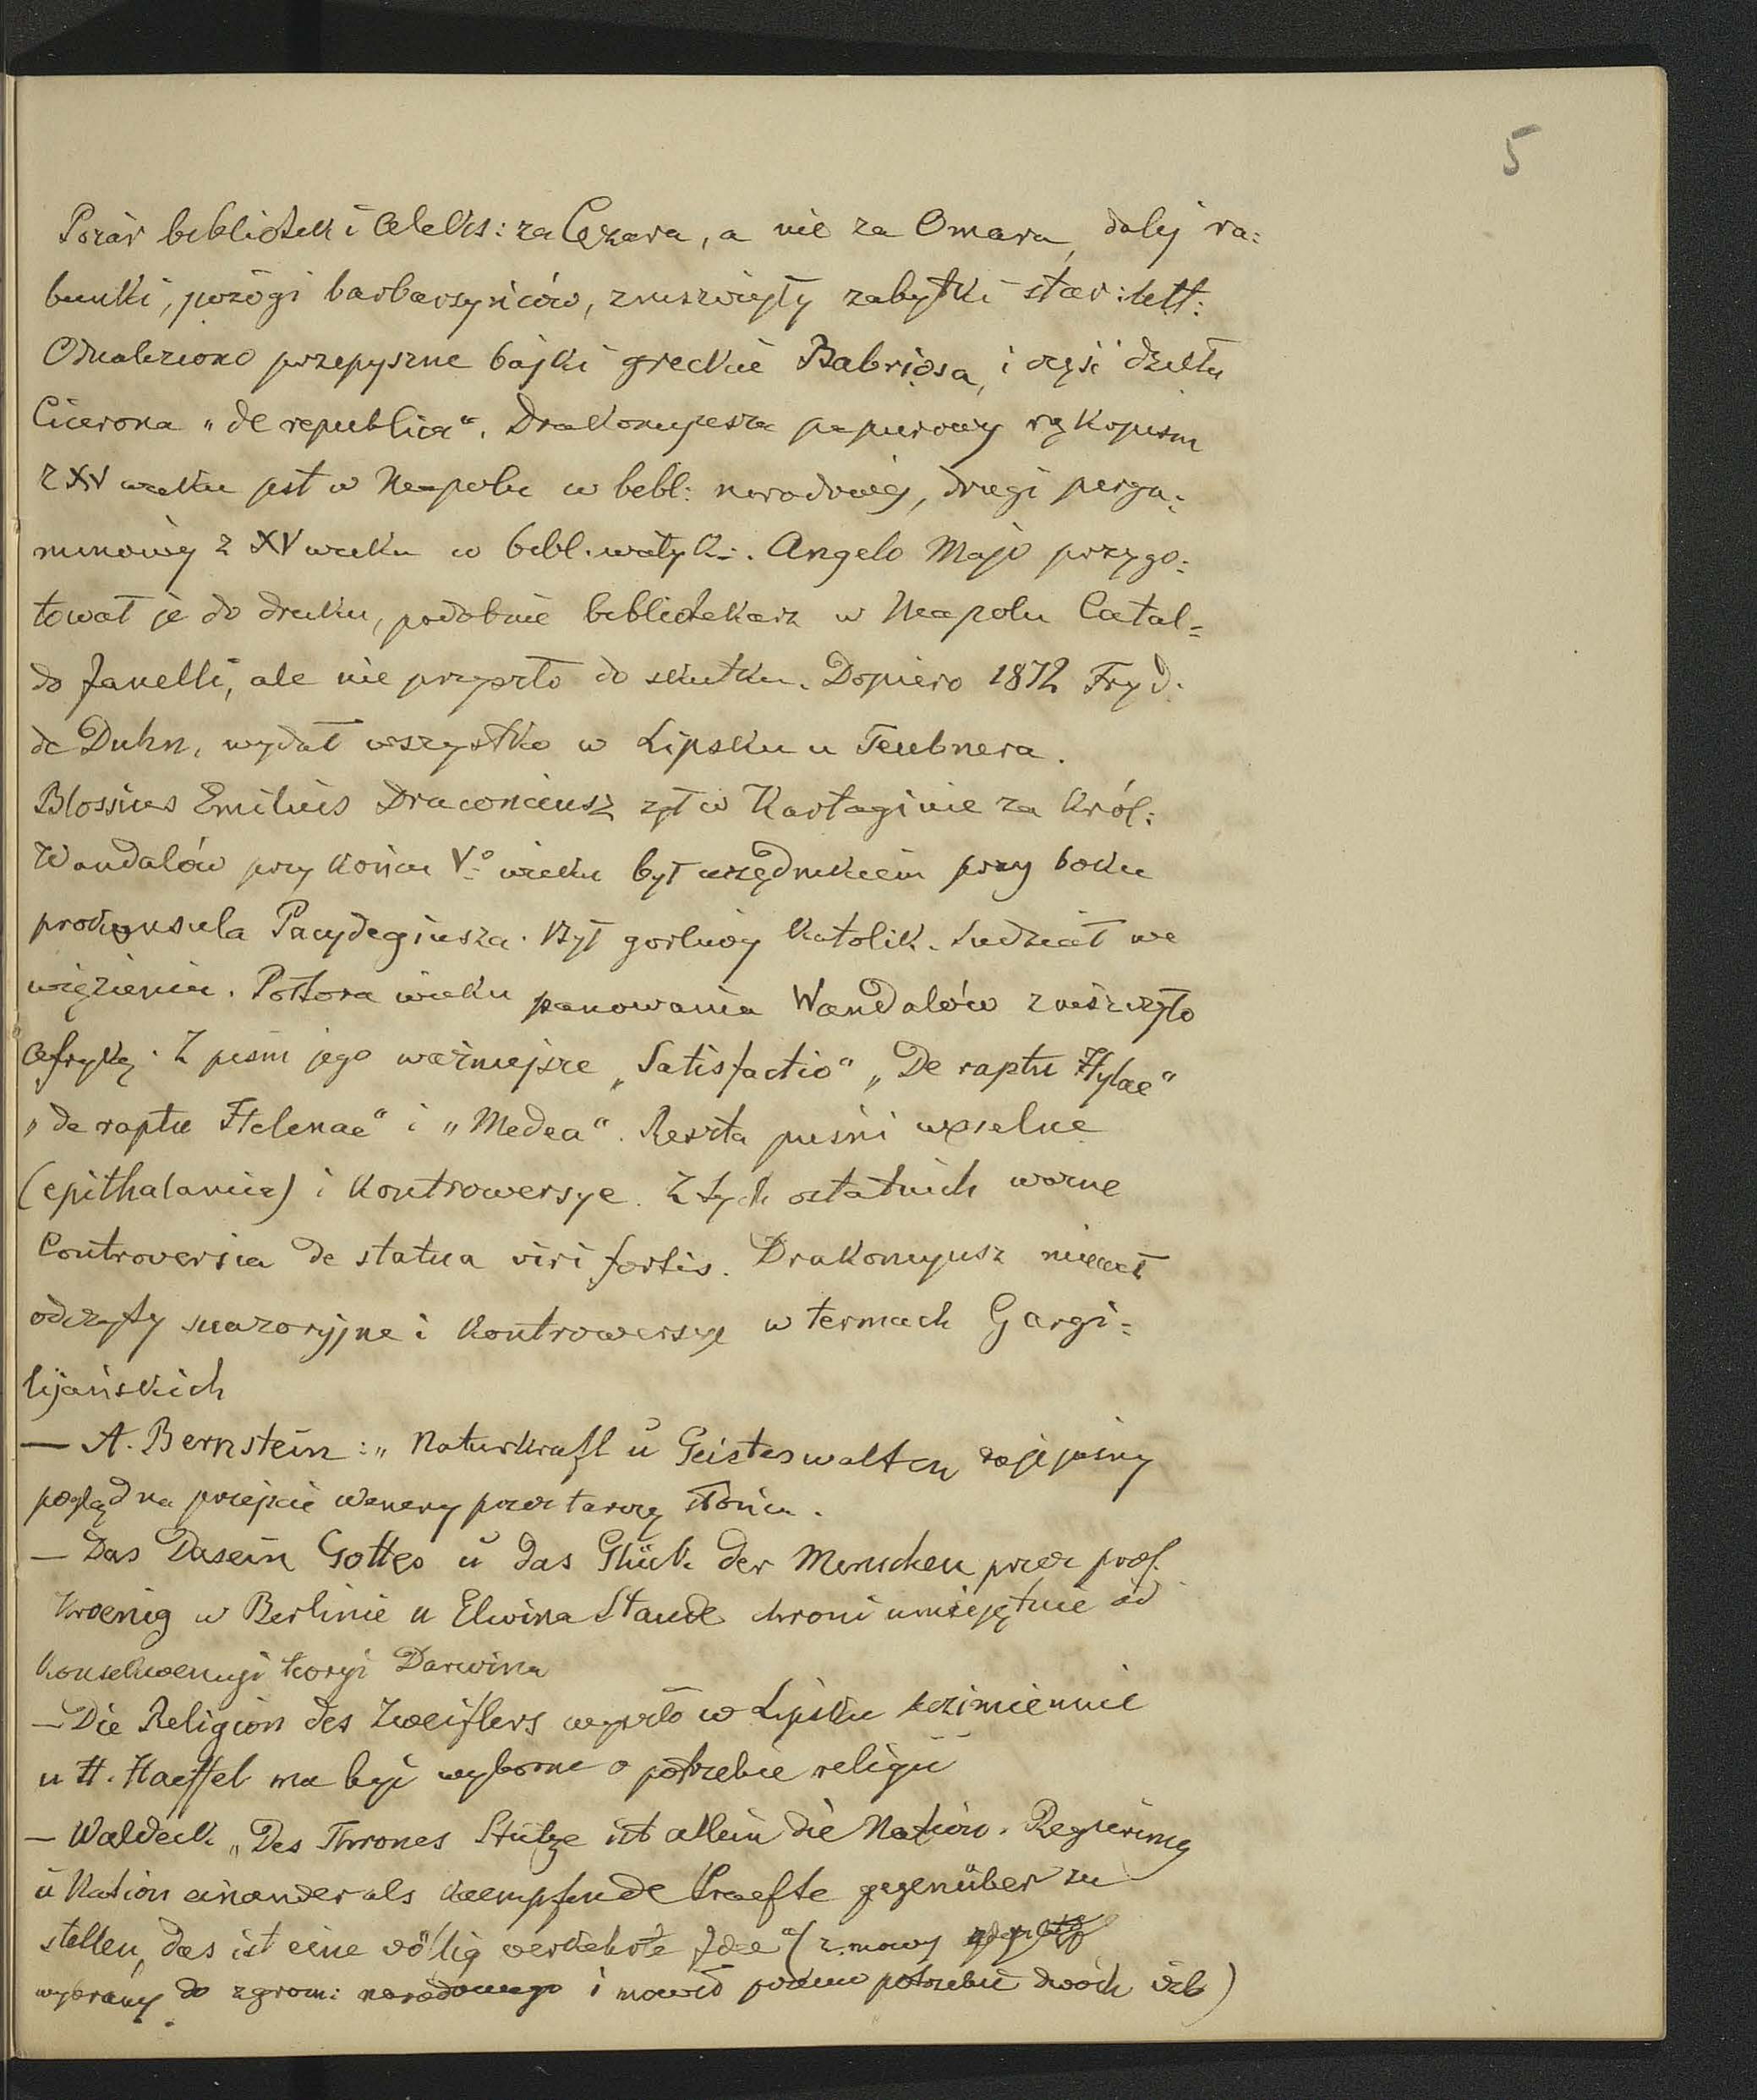 5
Pożar biblioteki Aleks: za Cezara, a nie za Omara, dalej ra:
bunki, pożogi barbarzyńców, zniszczyły zabytki star: litt:
Odnaleziono przepyszne bajki greckie Babriosa, i część dzieła
Cicerona "de republica". Drakoncyusza papierowy rękopism
z XV wieku jest w Neapolu w bibl: narodowej, drugi perga:
minowy z XV wieku w bibl. watyk:. Angelo Majo przygo:
tował je do druku, podobnie bibliotekarz w Neapolu Catal=
do Janelli, ale nie przyszło do skutku. Dopiero 1872 Fryd.
de Duhn, wydał wszystko w Lipsku u Teubnera.
Blossius Emilius Draconciusz żył w Kartaginie za Król:
Wandalów przy końcu Vº wieku był urzędnikiem przy boku
prokonsula Pacydegiusza. Był gorliwy katolik. Siedział we
więzieniu. Półtora wieku panowania Wandalów zniszczyło
Afrykę. Z pism jego ważniejsze "Satisfactio" "De raptu Hylae"
"de raptu Helenae" i "Medea". Reszta pieśni weselne
(epithalamia) i kontrowersye. Z tych ostatnich ważne
Controversia de statua viri fortis. Drakoncyusz miewał
odczyty suazoryjne i kontrowersye w termach Gargi=
lijańskich
— A. Bernstein: "Naturkraft u Geisteswalten daje jasny
pogląd na przejście Wenery przez tarczę słońca.
— Das Dasein Gottes u das Glück der Menschen przez prof.
Kroenig w Berlinie u Elwina Staude chroni umiejętnie od
konsekwencyi teoryi Darwina
— Die Religion des Zweiflers wyszło w Lipsku bezimiennie
u H. Haeffel ma być wyborne o potrzebie religii
— Waldeck "Des Thrones Stütze ist allein die Nation. Regierung
u Nation einander als kaempfende Kraefte gegenüber zu
stellen, das ist eine völlig verkehrte Idee" (z mowy
wybrany do zgrom: narodowego i mówił potrzebie dwóch izb)